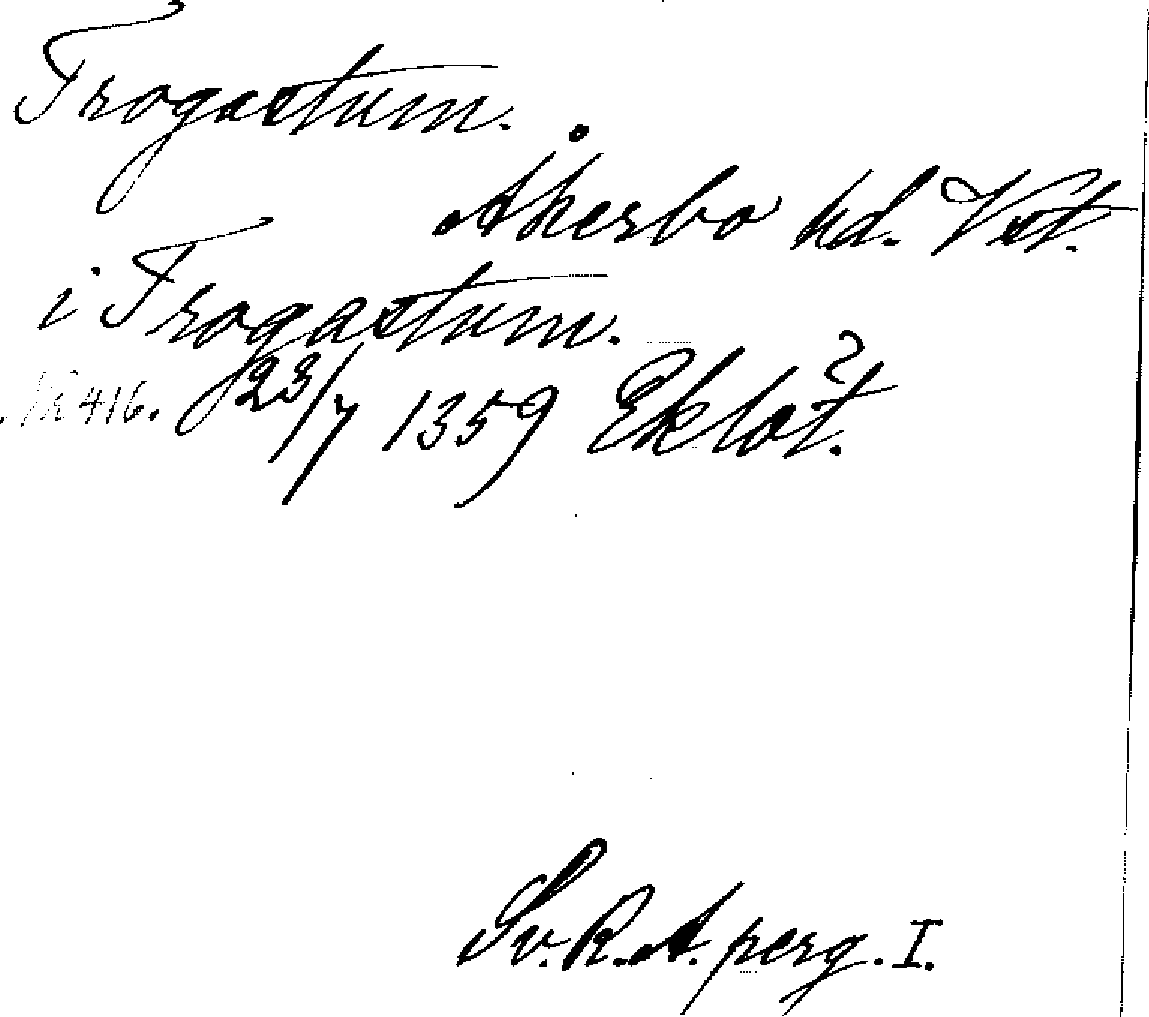 Trogastum.
Åkerbo hd. Vst.
i Trogastum.
Nr 416. 23/7 1359 Eklöt.
Sv. R. A. perg. I.